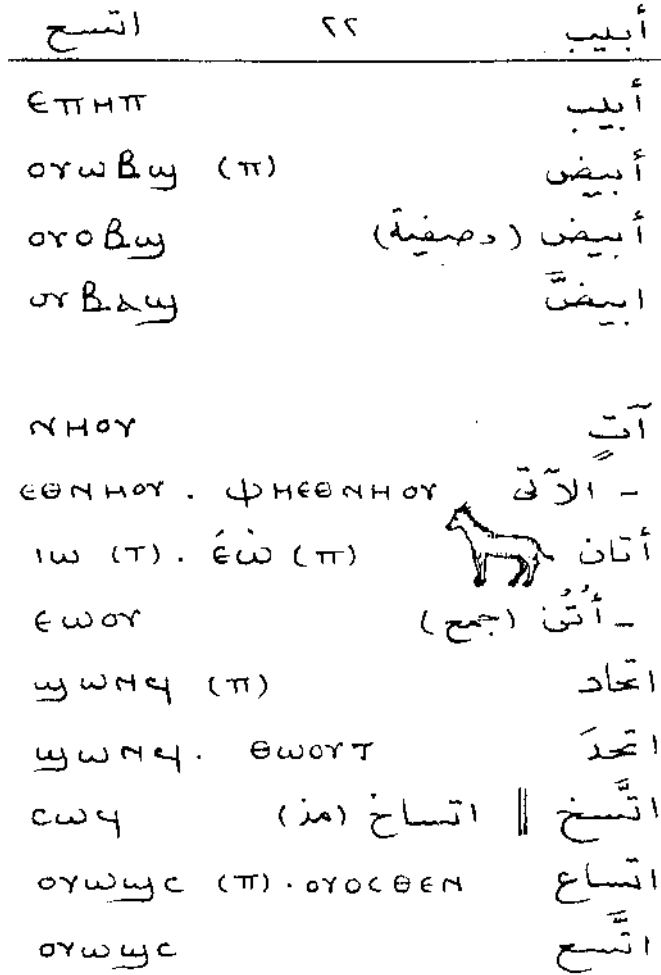 أبيب ٢٢ اتسع
أبيب ⲉⲡⲏⲡ
أبيض ⲟⲩⲱⲃϣ (ⲡ)
أبيض (وصفية) ⲟⲩⲟⲃϣ
ابيضَّ ⲟⲩⲃⲁϣ
آتٍ ⲛⲏⲟⲩ
- الآتى ⲉⲑⲛⲏⲟⲩ . ⲫⲏⲉⲑⲛⲏⲟⲩ
أتان ⲓⲱ (ⲧ) . ⲉ̀ⲱ̀ (ⲡ)
- أُتُن (جمع) ⲉⲱⲟⲩ
اتحاد ϣⲱⲛϥ (ⲡ)
اتحدَ ϣⲱⲛϥ . ⲑⲱⲟⲩⲧ
اتَّسخ || اتساخ (مذ) ⲥⲱϥ
اتساع ⲟⲩⲱϣⲥ (ⲡ) . ⲟⲩⲟⲥⲑⲉⲛ
اتَّسع ⲟⲩⲱϣⲥ